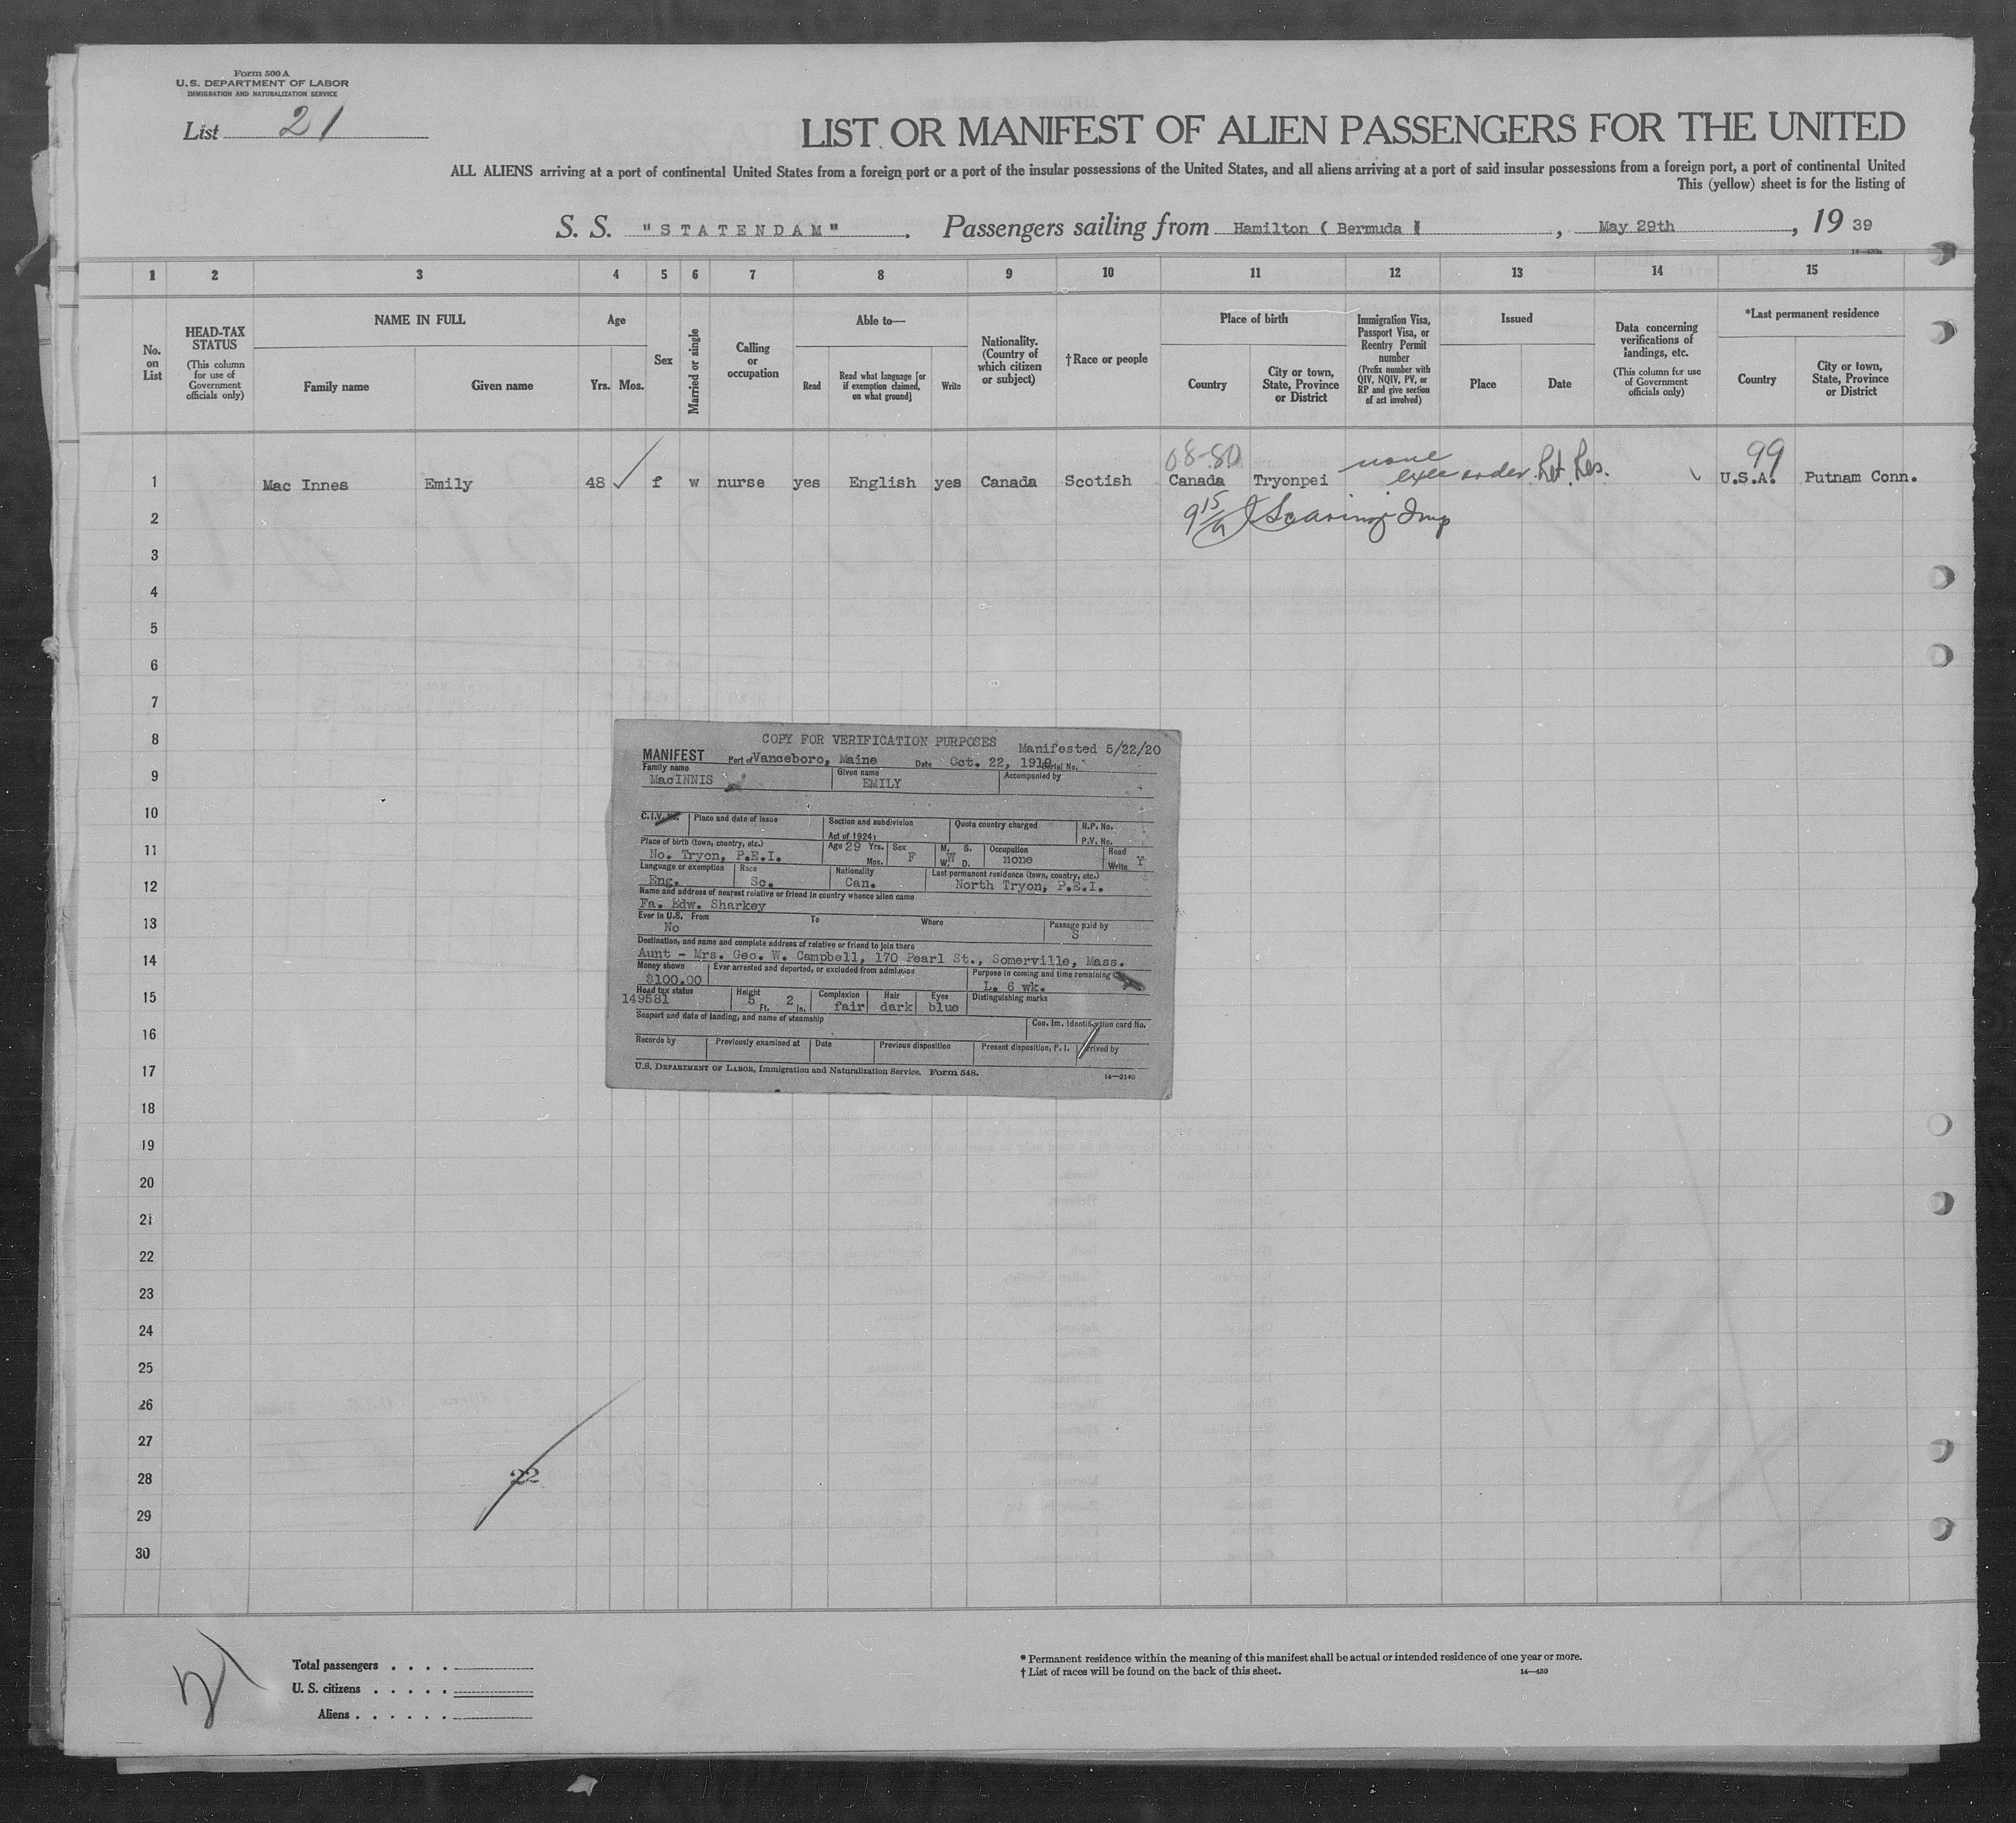 Form 500 A
U. S. DEPARTMENT OF LABOR
IMMIGRATION AND NATURALIZATION SERVICE
List 21
LIST OR MANIFEST OF ALIEN PASSENGERS FOR THE UNITED
ALL ALIENS arriving at a port of continental United States from a foreign port or a port of the insular possessions of the United States, and all aliens arriving at a port of said insular possessions from a foreign port, a port of continental United
This (yellow) sheet is for the listing of
S. S. "STATENDAM" . Passengers sailing from Hamilton ( Bermuda , May 29th , 19 39
1 2 3 4 5 6 7 8 9 10 11 12 13 14 15
No. on List
HEAD-TAX STATUS
(This column for use of Government officials only)
NAME IN FULL
Family name Given name
Age
Yrs. Mos.
Sex
Married or single
Calling or occupation
Able to—
Read
Read what language [or if exemption claimed, on what ground]
Write
Nationality. (Country of which citizen or subject)
†Race or people
Place of birth
Country
City or town, State, Province or District
Immigration Visa, Passport Visa, or Reentry Permit number
(Prefix number with QIV, NQIV, PV, or RP and give section of act involved)
Issued
Place Date
Data concerning verifications of landings, etc.
(This column for use of Government officials only)
*Last permanent residence
Country
City or town, State, Province or District
08-80 none 99
1 Mac Innes Emily 48 ✓ f w nurse yes English yes Canada Scotish Canada Tryonpei exec order Ret. Res. U.S.A. Putnam Conn.
2
3
4
5
6
7
8
9
10
11
12
13
14
15
16
17
18
19
20
21
22
23
24
25
26
27
28
29
30
COPY FOR VERIFICATION PURPOSES Manifested 5/22/20
MANIFEST Port of Vanceboro, Maine Date Oct. 22, 1919 Serial No.
Family name Given name Accompanied by
MacINNIS EMILY
C.I.V. No. Place and date of issue Section and subdivision Quota country charged R.P. No.
Act of 1924: P.V. No.
Place of birth (town, country, etc.) Age 29 Yrs. Sex M. S. Occupation Read
No. Tryon, P.E.I. Mos. F W. W D. none Write Y
Language or exemption Race Nationality Last permanent residence (town, country, etc.)
Eng. Sc. Can. North Tryon, P.E.I.
Name and address of nearest relative or friend in country whence alien came
Fa. Edw. Sharkey
Ever in U.S. From To Where Passage paid by
No S
Destination, and name and complete address of relative or friend to join there
Aunt - Mrs. Geo. W. Campbell, 170 Pearl St., Somerville, Mass.
Money shown Ever arrested and deported, or excluded from admission Purpose in coming and time remaining
$100.00 L. 6 wk.
Head tax status Height Complexion Hair Eyes Distinguishing marks
149581 5 Ft. 2 In. fair dark blue
Seaport and date of landing, and name of steamship Con. Im. Identification card No.
Records by Previously examined at Date Previous disposition Present disposition, P. I. Arrived by
U.S. DEPARTMENT OF LABOR, Immigration and Naturalization Service. Form 548. 14—2140
22
21
Total passengers . . . .
U. S. citizens . . . . .
Aliens . . . . . .
* Permanent residence within the meaning of this manifest shall be actual or intended residence of one year or more.
† List of races will be found on the back of this sheet. 14—430